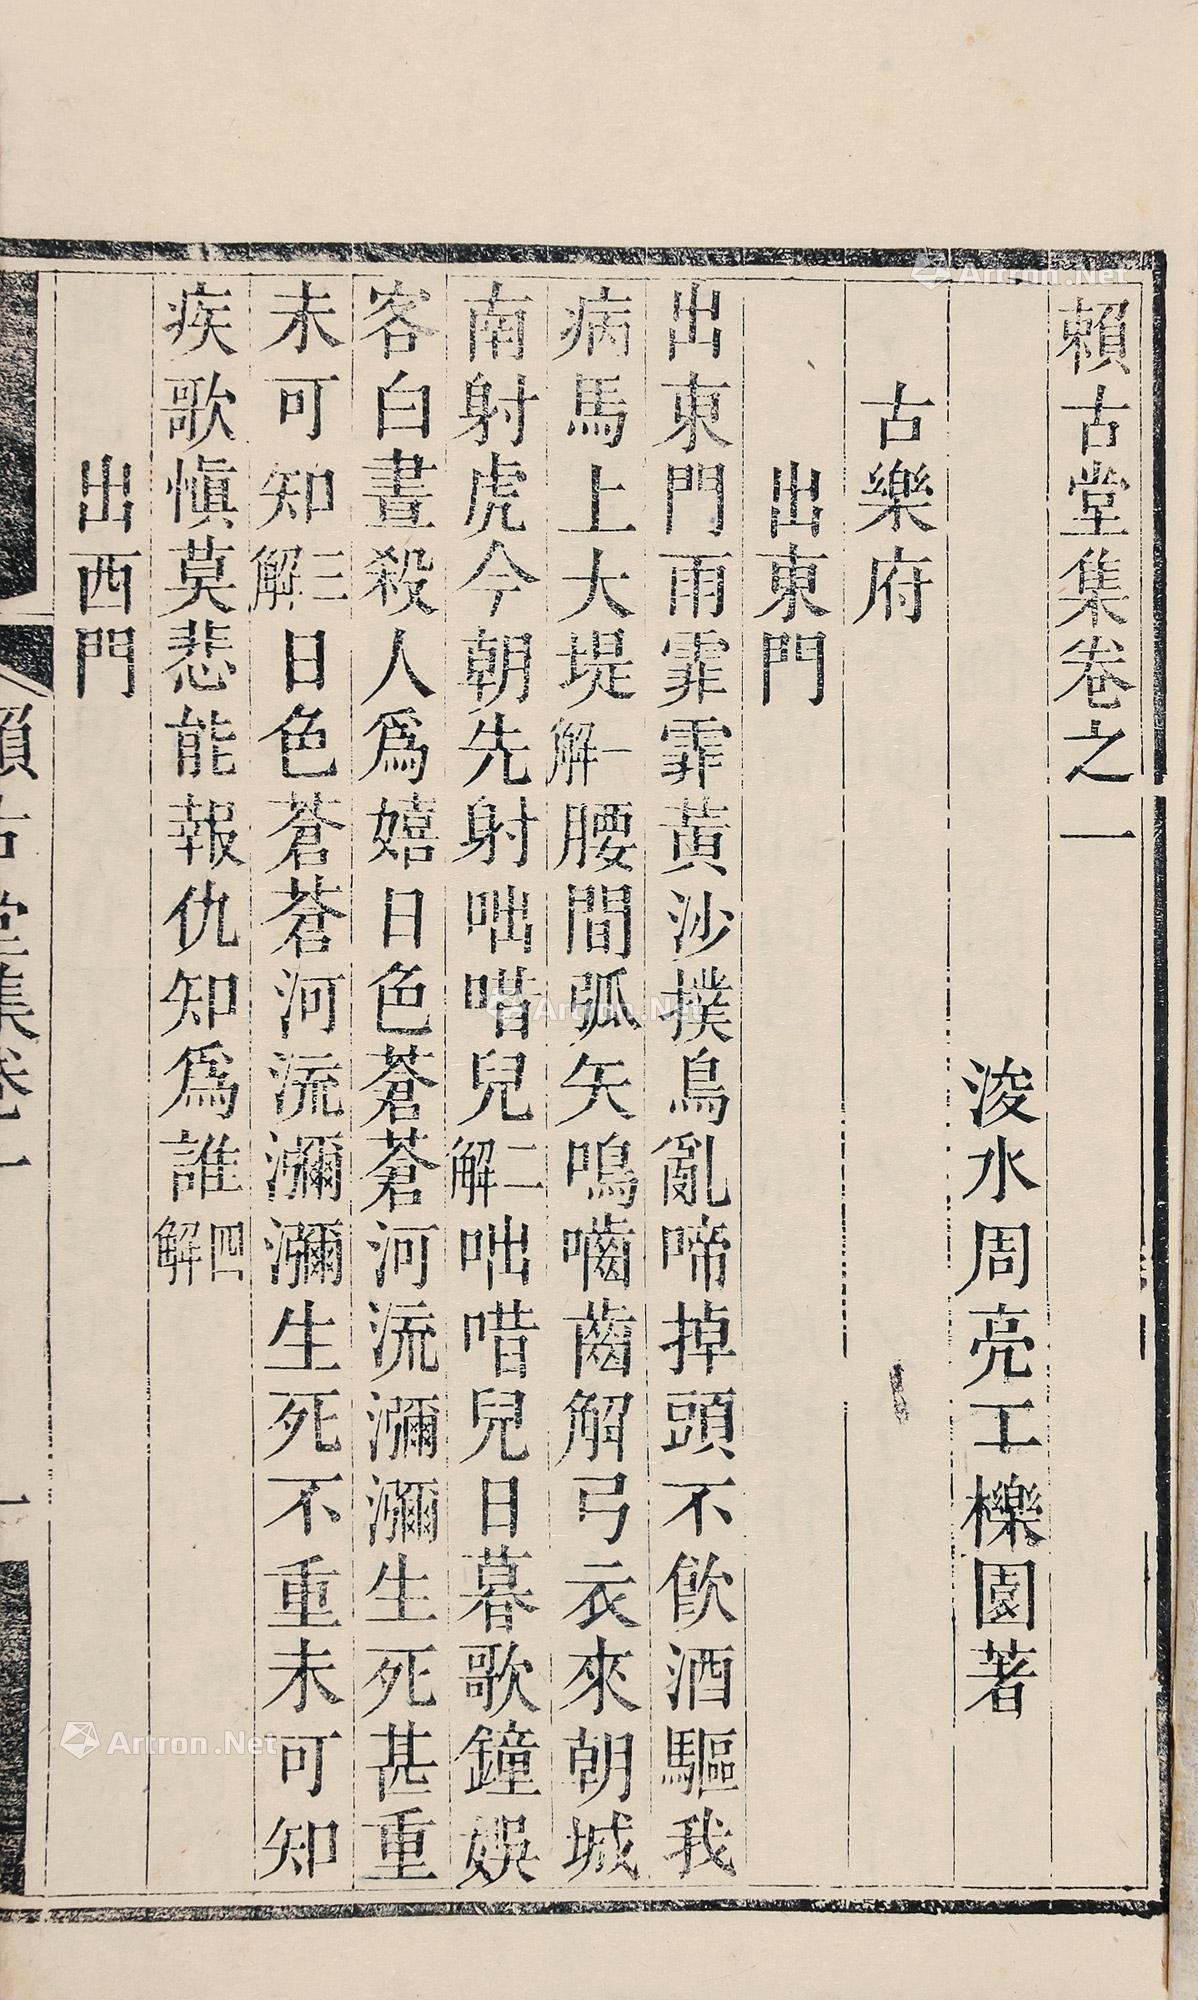 賴古堂集卷之一
浚水周亮工櫟園著
古樂府
出東門
出東門雨霏霏黃沙撲鳥亂啼掉頭不飲酒驅我
病馬上大堤一解腰間弧矢鳴嚙齒解弓衣來朝城
南射虎今朝先射咄唶兒二解咄唶兒日暮歌鐘娛
客白晝殺人為嬉日色蒼蒼河流瀰瀰生死甚重
未可知三解日色蒼蒼河流瀰瀰生死不重未可知
疾歌慎莫悲能報仇知為誰四解
出西門
賴古堂集卷一
一
Artron.Net
Artron.Net
Artron.Net